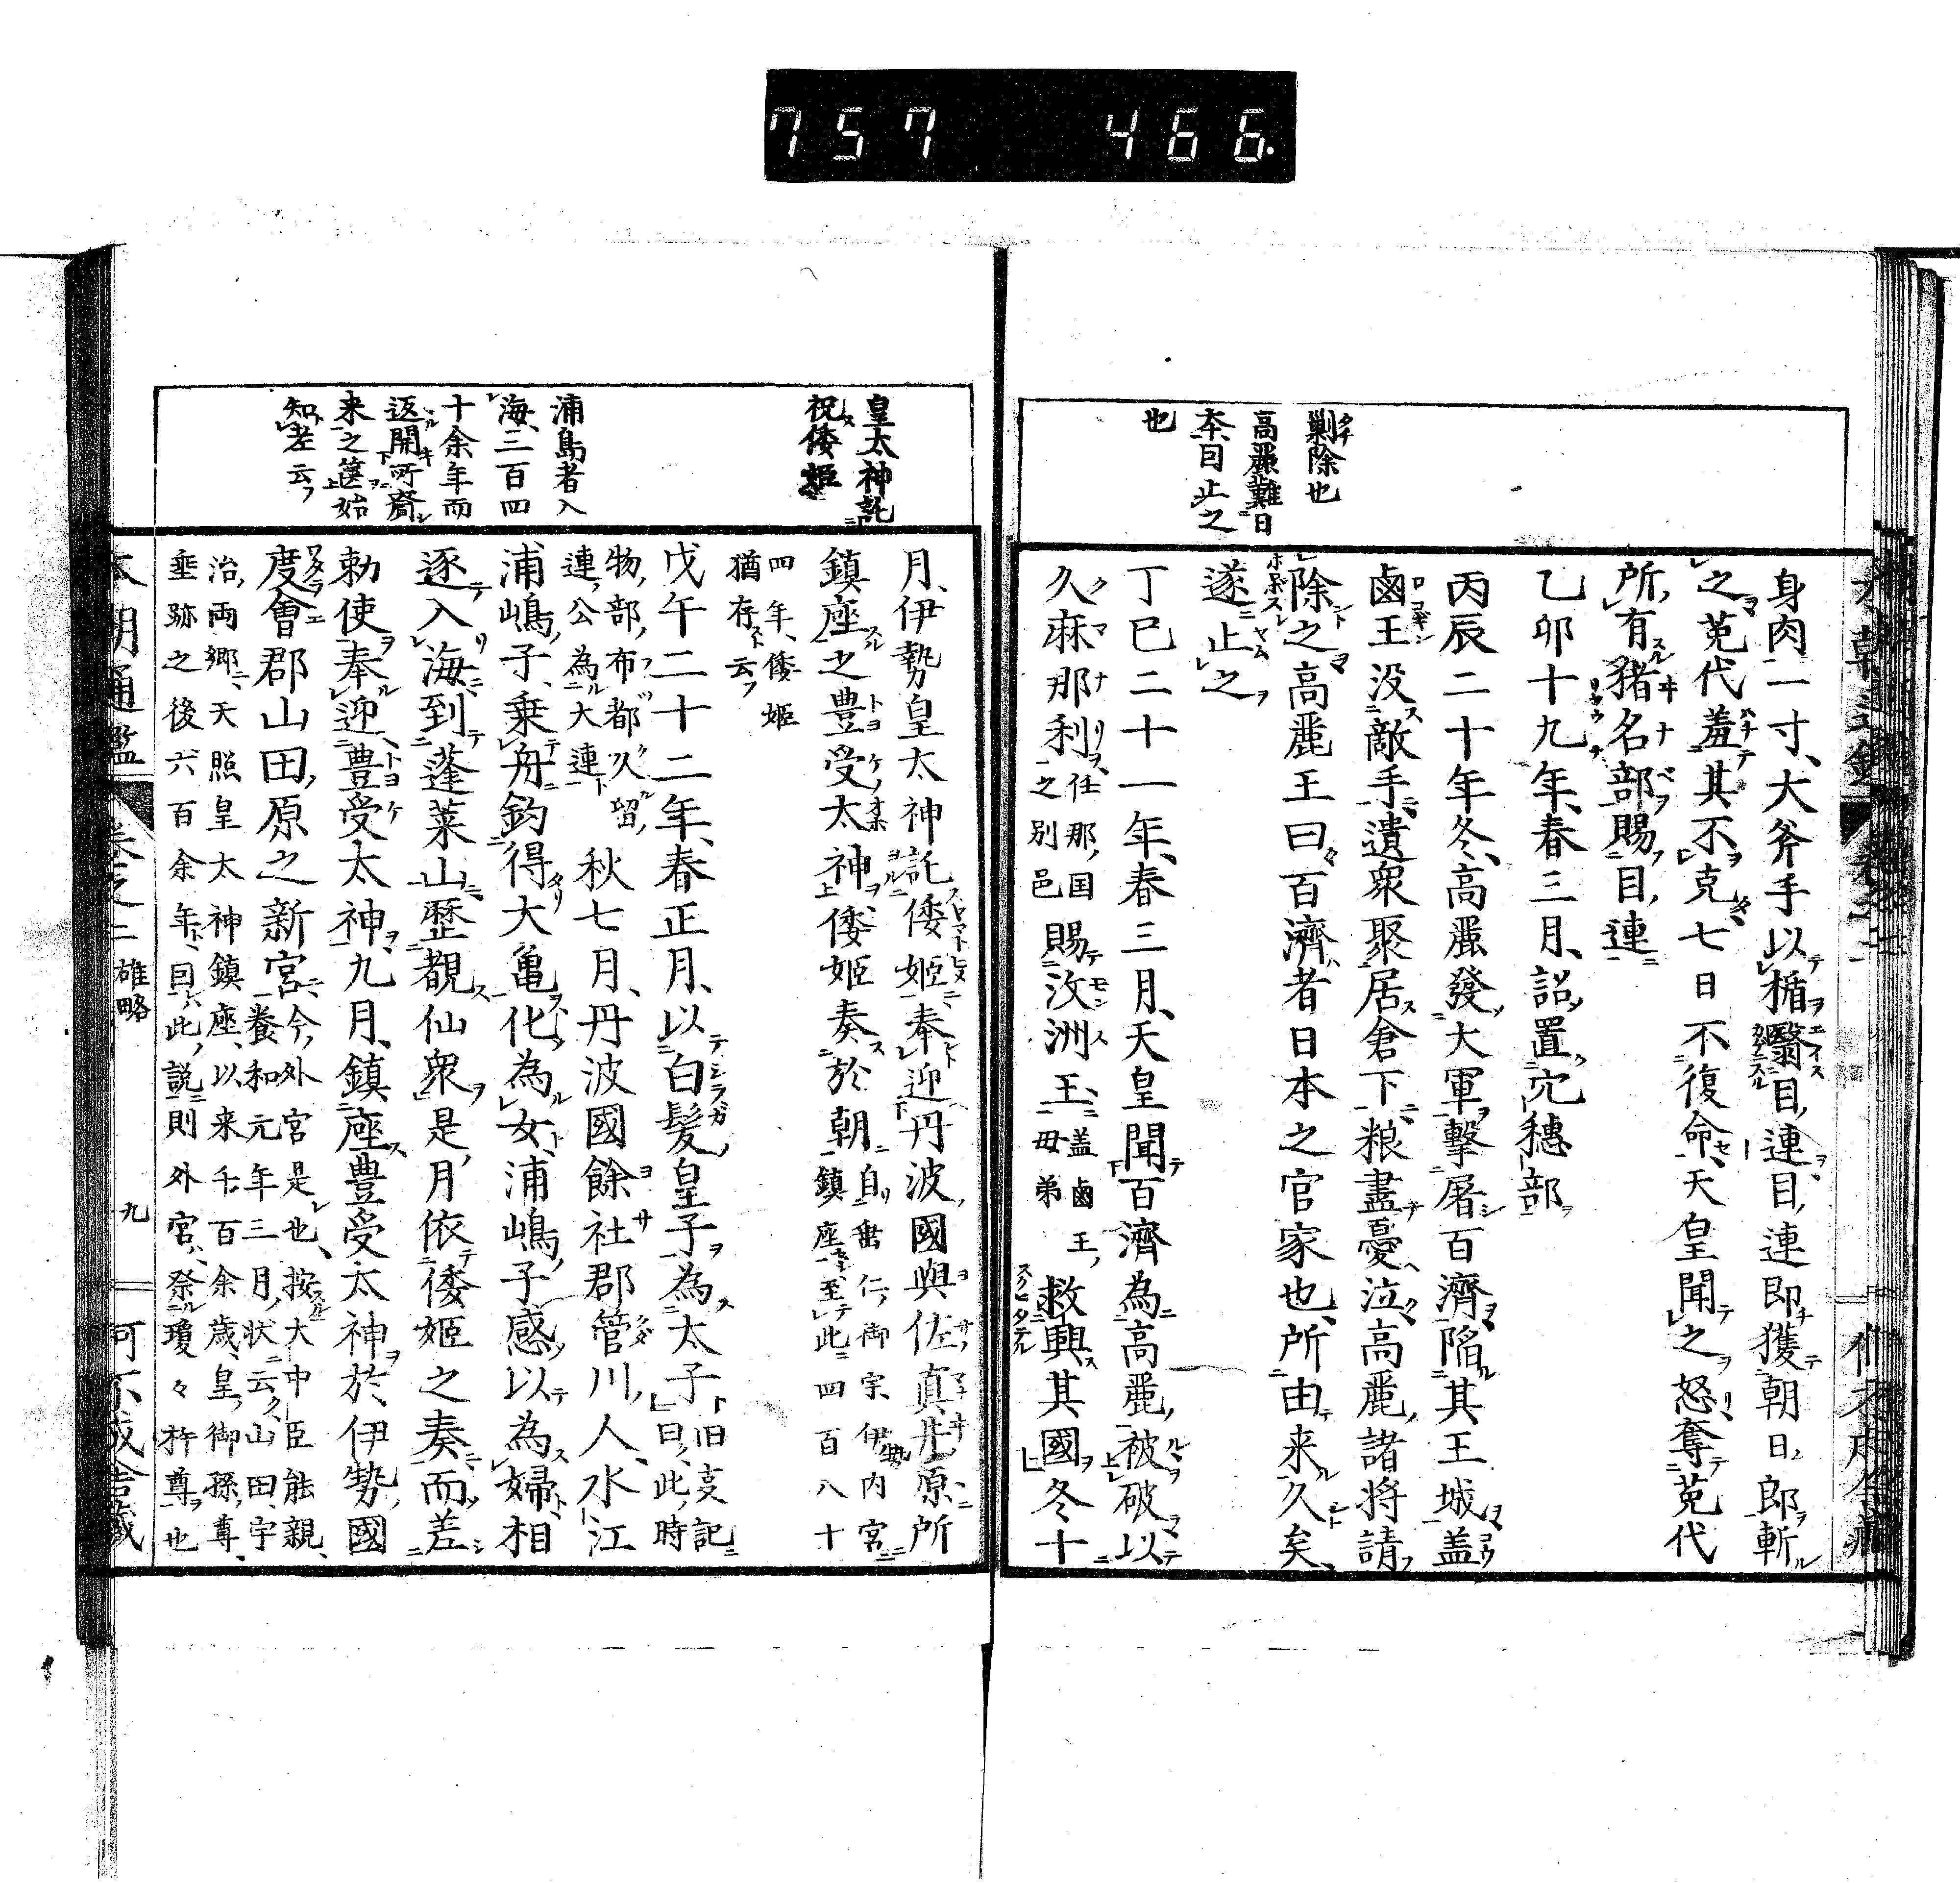 757 466.
剿除也
高麗難日
本目止之
也
身肉一寸、大斧手以楯翳目連目連即獲朝日郎斬
之菟代羞其不克七日不復命天皇聞之怒奪菟代
所有猪名部賜目連
乙卯十九年春三月詔置穴穂部
丙辰二十年冬高麗發大軍撃屠百濟陥其王城盖
鹵王没敵手遺衆聚居倉下粮盡憂泣高麗諸将請
除之高麗王曰百濟者日本之官家也所由来久矣
遂止之
丁巳二十一年春三月天皇聞百濟為高麗被破以
久麻那利任那国之別邑賜汶洲王盖鹵王母弟救興其國冬十
皇太神託
祝倭姫
浦島者入
海三百四
十余年而
返開所齎
来之篋始
知老云
月伊勢皇太神託倭姫奉迎丹波國與佐真井原所
鎮座之豊受太神倭姫奏於朝自垂仁御宇伊勢内宮鎮座至此四百八十
四年倭姫
猶存云
戊午二十二年春正月以白髪皇子為太子旧事記曰此時
物部布都久留
連公為大連
秋七月丹波國餘社郡管川人水江
浦嶋子乗舟釣得大亀化為女浦嶋子感以為婦相
逐入海到蓬莱山歴覩仙衆是月依倭姫之奏而差
勅使奉迎豊受太神九月鎮座豊受太神於伊勢國
度會郡山田原之新宮今外宮是也按大中臣能親
養和元年三月状云山田宇
治両郷天照皇太神鎮座以来千百余歳皇御孫尊
垂跡之後六百余年曰此説則外宮祭瓊々杵尊也
本朝通鑑 巻之二 雄略 九